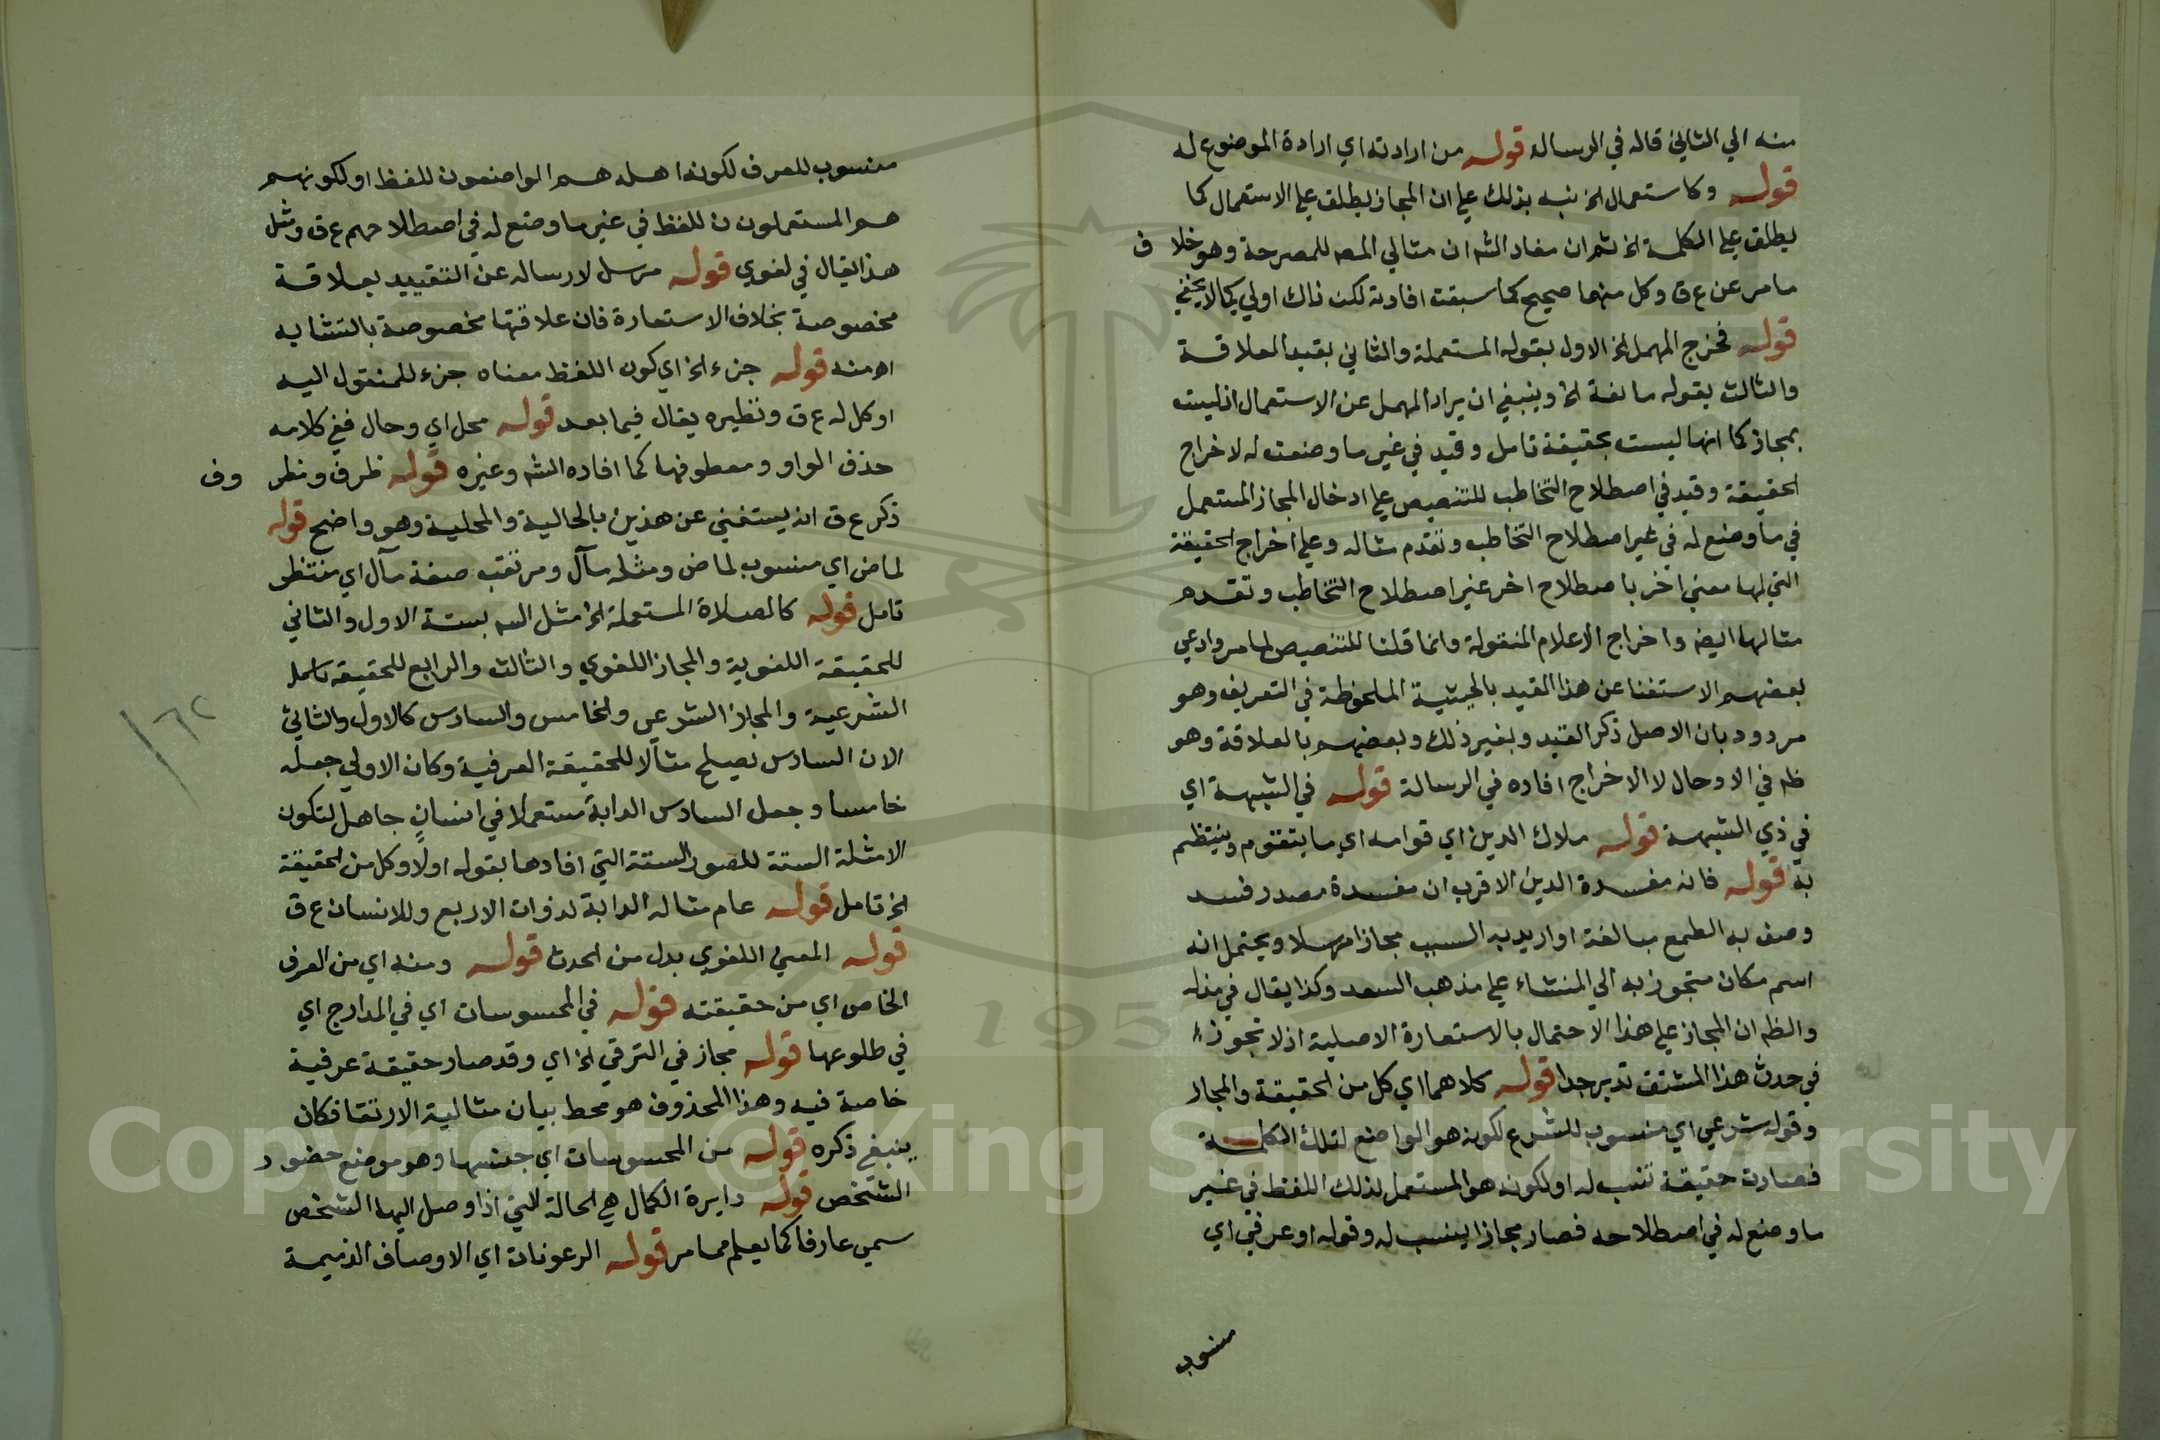 منه الي الثاني قاله في الرساله قوله من ارادته اي ارادة الموضوع له
قوله وكاستعمال الخ نبه بذلك علي ان المجاز يطلق علي الاستعمال كما
يطلق علي الكلمة الخ ثم ان مفاد الشه ان مثالي المصه للمصرحة وهو خلاف
ما مر عن ع ق وكل منهما صحيح كما سبقت افادته لكن ذاك اولي كما لا يخفي
قوله فخرج المهمل الخ الاول بقوله المستعملة والثاني بقيد العلاقة
والثالث بقوله مانعة الخ وينبغي ان يراد المهمل عن الاستعمال اذ ليست
بمجاز كما انها ليست بحقيقة تامل وقيد في غير ما وضعت له لاخراج
الحقيقة وقيد في اصطلاح التخاطب للتنصيص علي ادخال المجاز المستعمل
في ما وضع له في غير اصطلاح التخاطب وتقدم مثاله وعلي اخراج الحقيقة
التي لها معني اخر باصطلاح اخر غير اصطلاح التخاطب وتقدم
مثالها ايضه واخراج الاعلام المنقولة وانما قلنا للتنصيص لما مر وادعي
بعضهم الاستغنا عن هذا القيد بالحيثية الملحوظة في التعريف وهو
مردود بان الاصل ذكر القيد وبغير ذلك وبعضهم بالعلاقة وهو
ظه في الادخال لا الاخراج افاده في الرسالة قوله في الشبهة اي
في ذي الشبهة قوله ملاك الدين اي قوامه اي ما يتقوم وينتظم
به قوله فانه مفسدة الدين الاقرب ان مفسدة مصدر فسد
وصف به الطمع مبالغة او اريد به السبب مجازا مرسلا ويحتمل انه
اسم مكان متجوز به الي المنشاء علي مذهب السعد وكذا يقال في
والظه ان المجاز علي هذا الاحتمال بالاستعارة الاصلية اذ لا تجوز
في حدث هذا المشتق تدبر جدا قوله كلاهما اي كل من الحقيقة والمجاز
وقوله شرعي اي منسوب للشرع لكونه هو الواضع لتلك الكلمة
فصارت حقيقة تنسب له او لكونه هو المستعمل لذلك اللفظ في غير
ما وضع له في اصطلاحه فصار مجازا ينسب له وقوله او عرفي اي
منسوب
منسوب للعرف لكون اهله هم الواضعون للفظ او لكونهم
هم المستعملون للفظ في غير ما وضع له في اصطلاحهم ع ق ومثل
هذا يقال في لغوي قوله مرسل لارساله عن التقييد بعلاقة
مخصوصة بخلاف الاستعارة فان علاقتها مخصوصة بالتشابه
اه منه قوله جزء الخ اي كون اللفظ معناه جزء للمنقول اليه
او كل له ع ق ونظيره يقال فيما بعد قوله محل اي وحال ففي كلامه
حذف الواو ومعطوفها كما افاده الشه وغيره قوله ظرف ومظروف
ذكر ع ق انه يستغني عن هذين بالحالية والمحلية وهو واضح قوله
لماض اي منسوب لماض ومثله مآل ومرتقب صفة مآل اي منتظر
تامل قوله كالصلاة المستعملة الخ مثل المصه بستة الاول والثاني
للحقيقة اللغوية والمجاز اللغوي والثالث والرابع للحقيقة
الشرعية والمجاز الشرعي والخامس والسادس كالاول والثاني
الان السادس يصلح مثالا للحقيقة العرفية وكان الاولي جعله
خامسا وجعل السادس الدابة مستعملا في انسان جاهل لتكون
الامثلة الستة للصور الستة التي افادها بقوله اولا وكل من الحقيقة
الخ تامل قوله عام مثاله الدابة لذوات الاربع وللانسان ع ق
قوله المعني اللغوي بدل من الحدث قوله ومنه اي من العرف
الخاص اي من حقيقته قوله في المحسوسات اي في المدارج اي
في طلوعها قوله مجاز في الترقي الخ اي وقد صار حقيقة عرفية
خاصة فيه وهذا المحذوف هو محط بيان مثالية الارتقا فكان
ينبغي ذكره قوله من المحسوسات اي جنسها وهو موضع حضور
الشخص قوله دايرة الكمال هي الحالة التي اذا وصل اليها الشخص
سمي عارفا كما يعلم مما مر قوله الرعونات اي الاوصاف الذميمة
١٦٢
Copyright © King Saud University
195